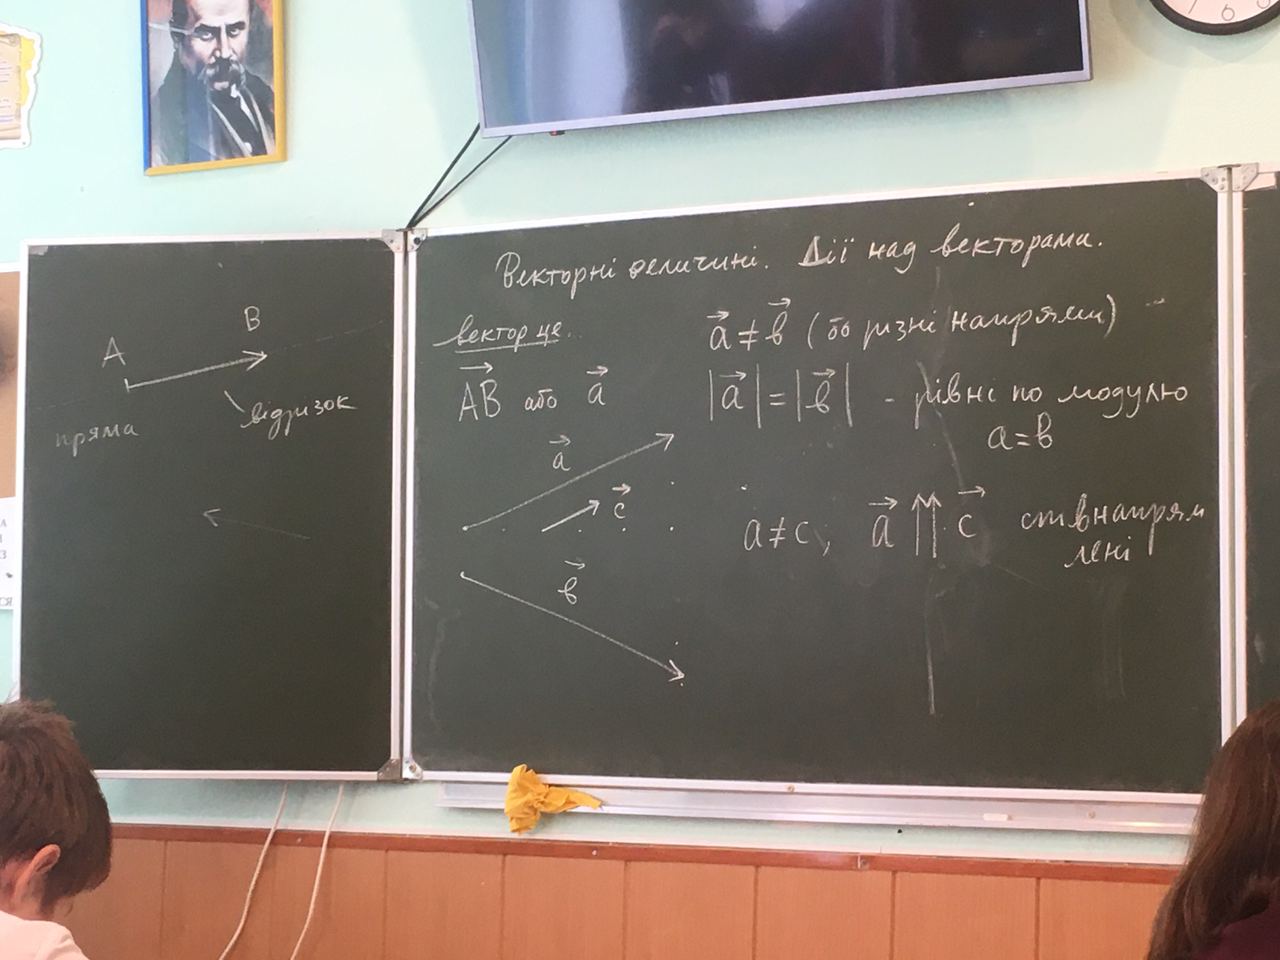 A
B
пряма
відрізок
Векторні величині. Дії над векторами.
вектор це
A⃗B⃗ або a⃗
a⃗
c⃗
b⃗
a⃗ ≠ b⃗ (бо різні напрями)
|a⃗| = |b⃗| - рівні по модулю
a = b
a ≠ c; a⃗ ↑↑ c⃗
лені
6